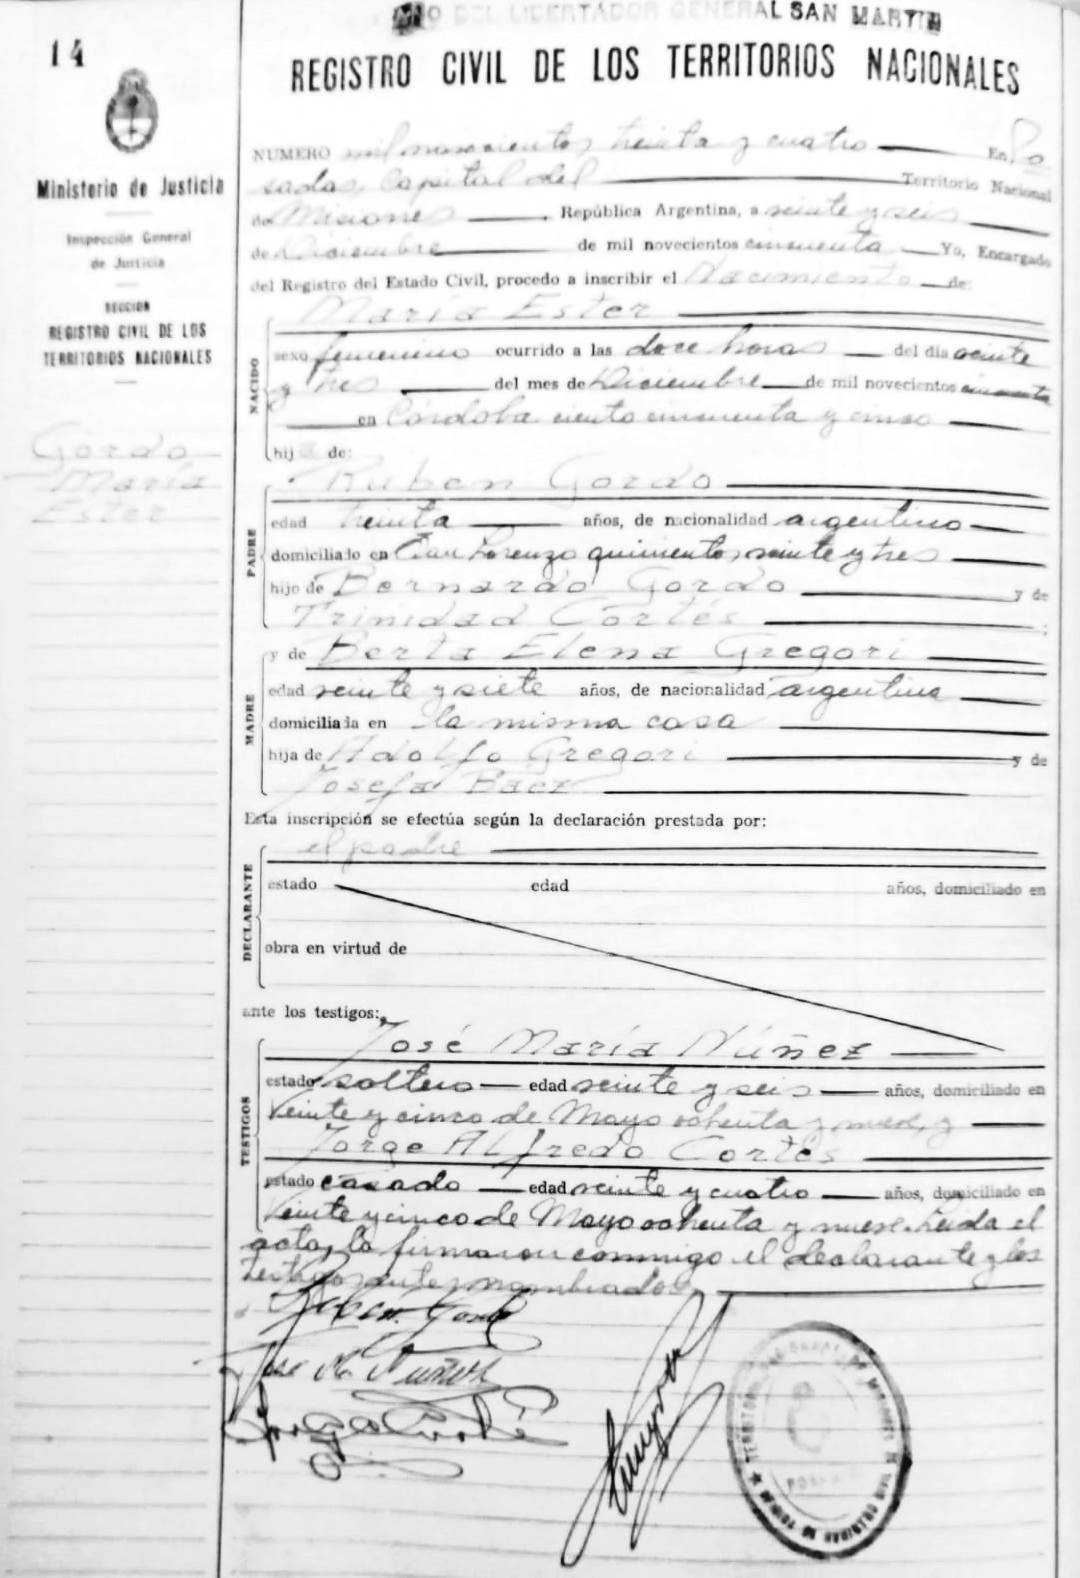 AÑO DEL LIBERTADOR GENERAL SAN MARTIN
14
REGISTRO CIVIL DE LOS TERRITORIOS NACIONALES
Ministerio de Justicia
Inspección General
de Justicia
SECCION
REGISTRO CIVIL DE LOS
TERRITORIOS NACIONALES
Gordo
María
Ester
NUMERO mil novecientos treinta y cuatro En Po
sadas, Capital del Territorio Nacional
de Misiones, República Argentina, a veinte y seis
de Diciembre de mil novecientos cincuenta Yo, Encargado
del Registro del Estado Civil, procedo a inscribir el Nacimiento de:
NACIDO
María Ester
sexo femenino ocurrido a las doce horas del día veinte
y tres del mes de Diciembre de mil novecientos cincuenta
en Córdoba ciento cincuenta y cinco
hija de:
PADRE
Ruben Gordo
edad treinta años, de nacionalidad argentino
domiciliado en San Lorenzo quinientos veinte y tres
hijo de Bernardo Gordo y de
Trinidad Cortés ;
MADRE
y de Berta Elena Gregori
edad veinte y siete años, de nacionalidad argentina
domiciliada en la misma casa
hija de Adolfo Gregori y de
Josefa Báez
Esta inscripción se efectúa según la declaración prestada por:
DECLARANTE
el padre
estado edad años, domiciliado en
obra en virtud de
ante los testigos:
TESTIGOS
José María Núñez
estado soltero edad veinte y seis años, domiciliado en
Veinte y cinco de Mayo ochenta y nueve, y
Jorge Alfredo Cortés
estado casado edad veinte y cuatro años, domiciliado en
Veinte y cinco de Mayo ochenta y nueve. Leida el
acta, la firmaron conmigo el declarante y los
testigos antes nombrados.
Ruben Gordo
Jose M. Nuñez
Jorge Cortés
TERRITORIO NACIONAL DE MISIONES